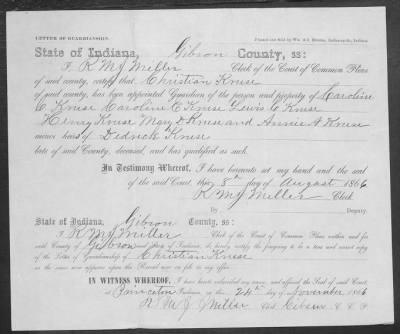 LETTER OF GUARDIANSHIP.
State of Indiana, Gibson County, ss:
I R M J Miller Clerk of the Court of Common Pleas
of said county, certify that Christian Kruse
of said county, has been appointed Guardian of the person and property of Caroline
C Kruse Caroline E Kruse Lewis C Kruse
Henry Kruse Mary D Kruse and Annie A Kruse
minor heirs of Dedrick Kruse
late of said County, deceased, and has qualified as such.
In Testimony Whereof, I have hereunto set my hand and the seal
of the said Court, this 8th day of August 1866
R M J Miller Clerk
By Deputy.
State of Indiana, Gibson County, ss:
I R M J Miller Clerk of the Court of Common Pleas within and for
said County of Gibson and State of Indiana, do hereby certify the foregoing to be a true and correct copy
of the Letter of Guardianship of Christian Kruse
as the same now appears upon the Record now on file in my office.
IN WITNESS WHEREOF, I have hereunto subscribed my name, and affixed the Seal of said Court,
at Princeton Indiana, on the 24th day of November 1866
R M J Miller